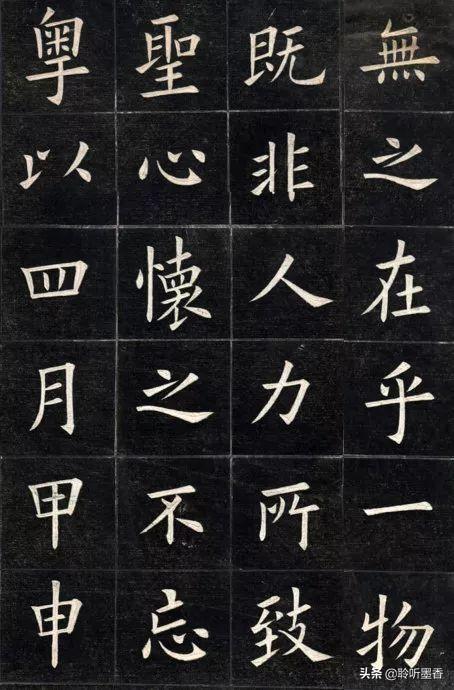 無之在乎一物
既非人力所致
聖心懷之不忘
粤以四月甲申
头条 @聆听墨香